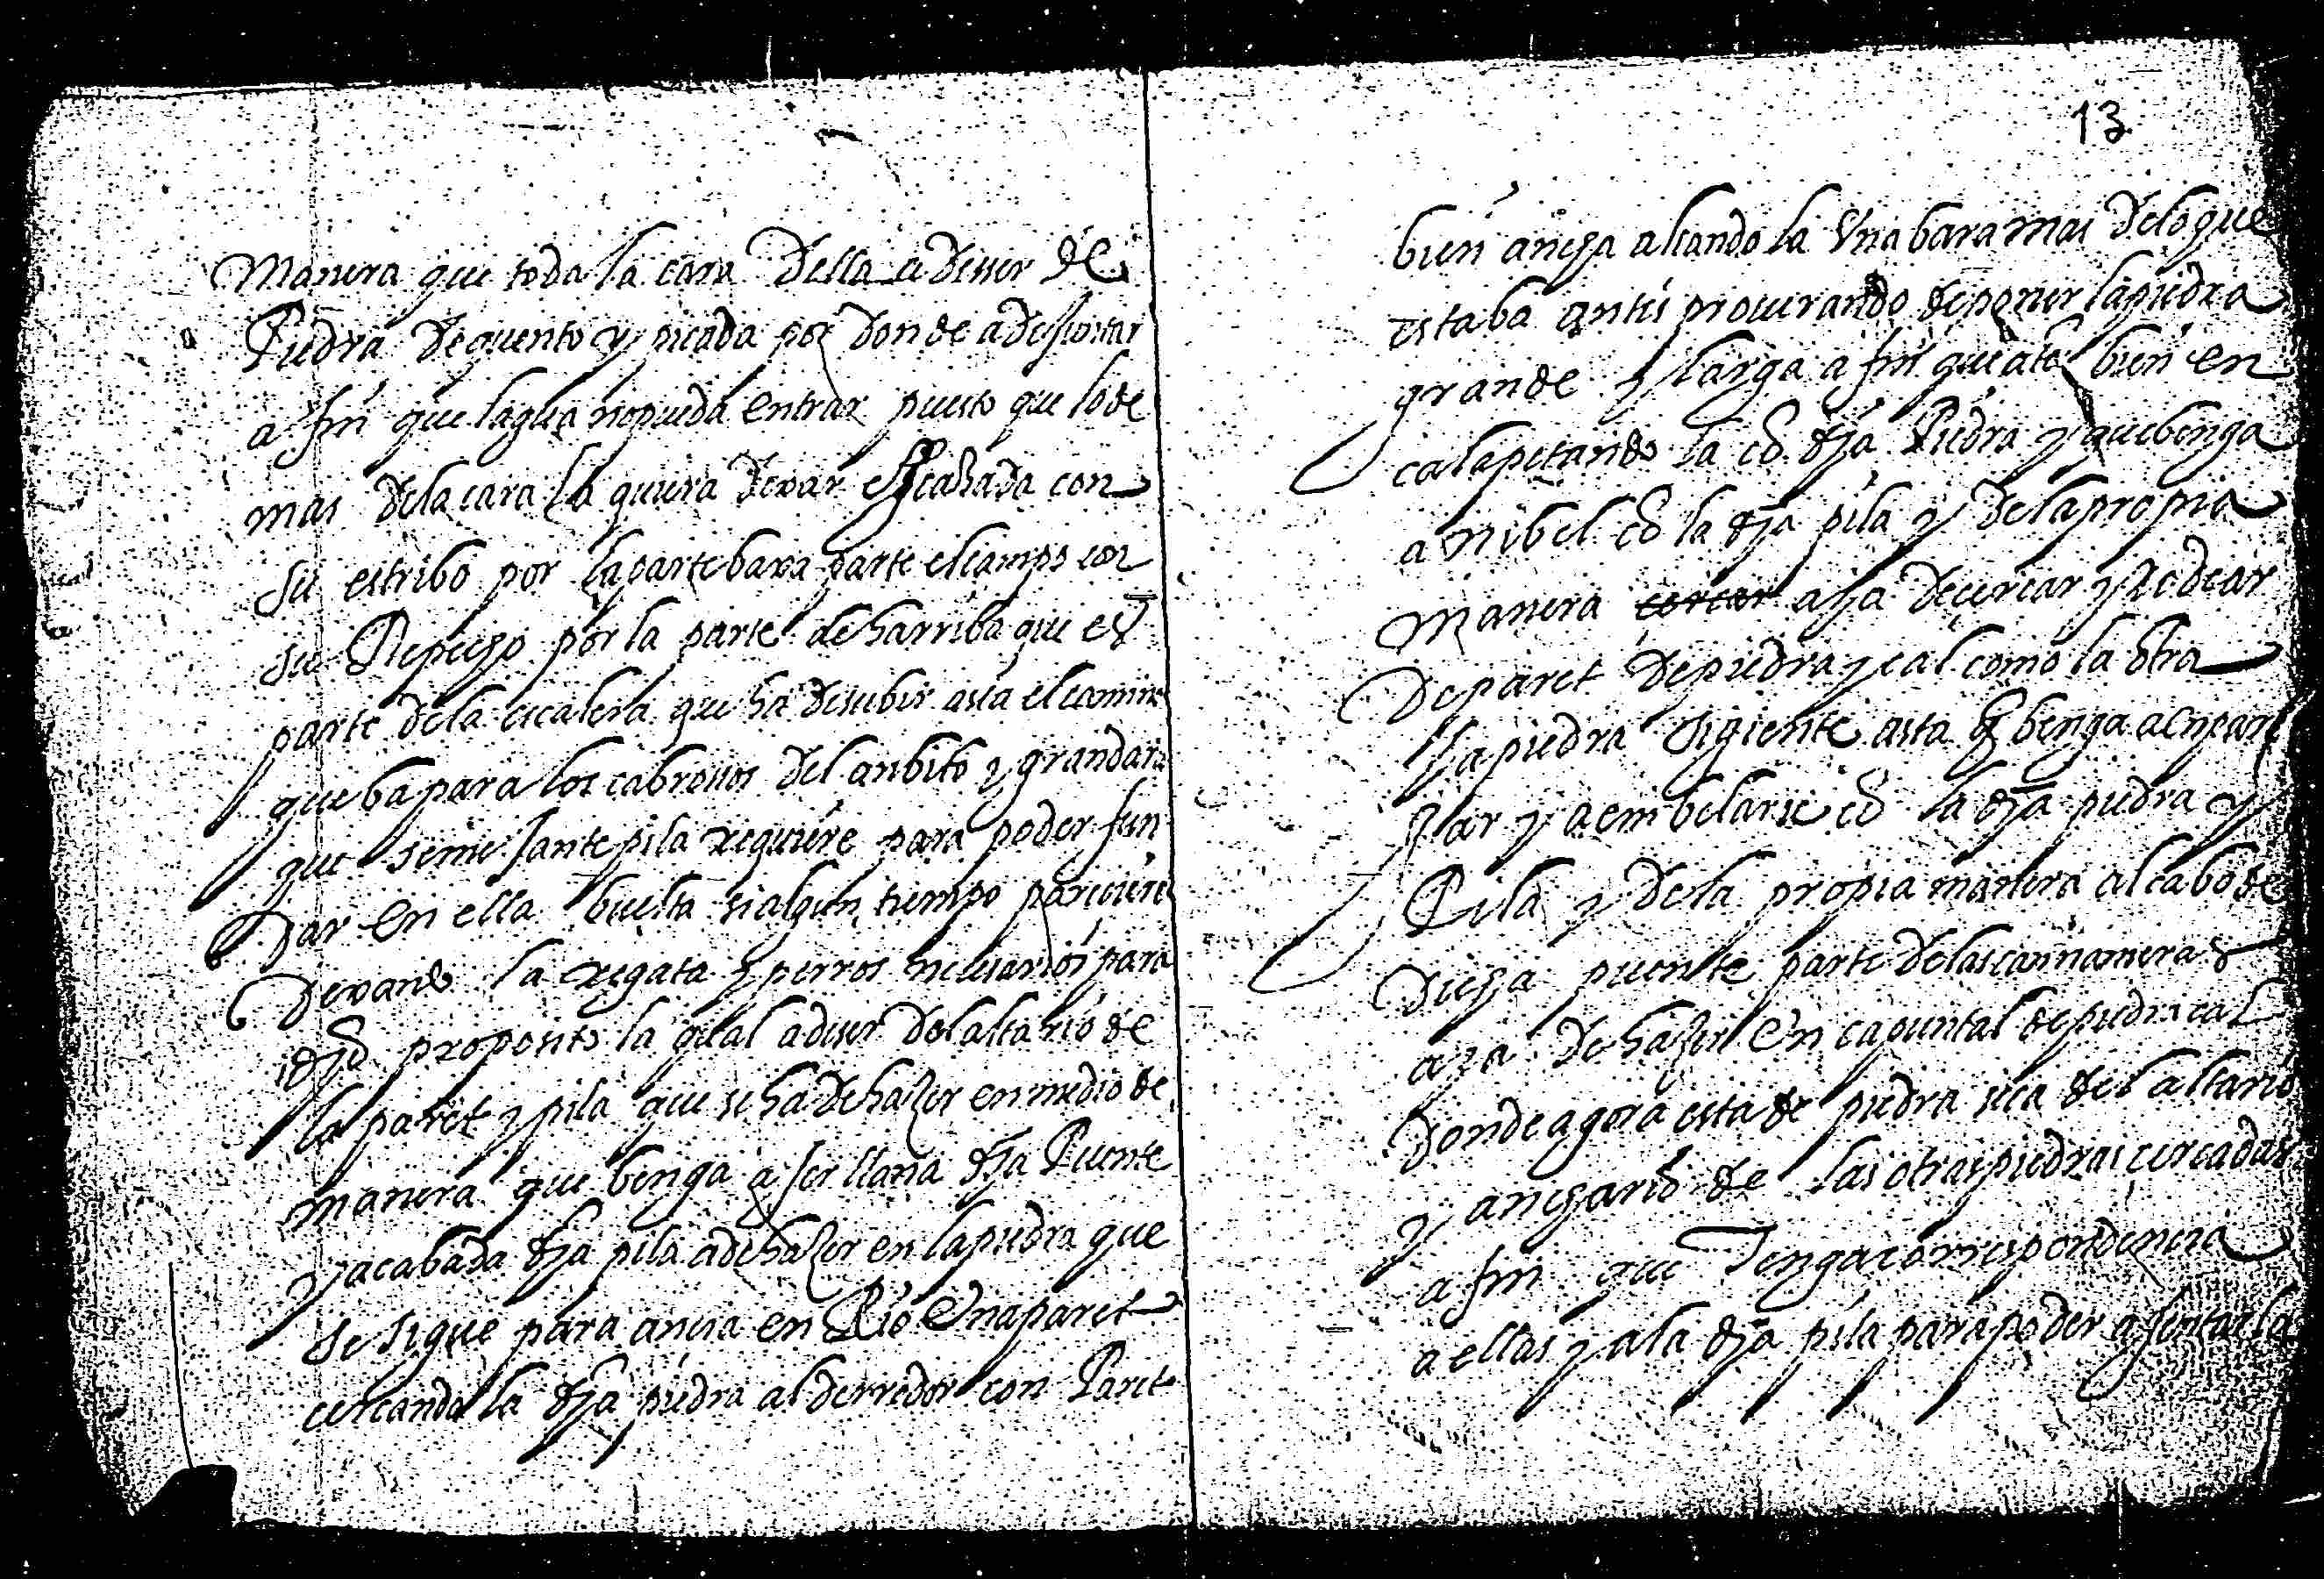 manera que toda la cara della a desser de
Piedra de quento y picada por donde a de
a fin que lagua nopueda entrar puesto que lo de
mas dela cara la quiera dexar con
su estribo por la parte baxa parte el campo con
su Repuyo por la parte de harriba que es
parte dela escalera que ha desubir asta el camino
que ba para los cabrosos del anbito y grandaria
que seme Jante pila requiere para poder fun
dar en ella buelta si algun tiempo pareciere
Dexando la regata y perros necesarios para
djo proposito la qual a deser del altario de
la paret y pila que se ha de hazer en medio de
manera que benga a ser llana dja Puente
y acabada dja pila a de hazer en la piedra que
se sigue para ancia en Rio Vna paret
cercando la dja piedra al derredor con Paret
13
bien ancha alçando la Vna bara mas delo que
estaba antes procurando deponer lapiedra
grande y larga a fin que ate bien en
calapetando la cō dja Piedra y que benga
a nibel cō la dja pila y dela propia
manera aya de cercar y Rodear
De paret de piedra y cal como la otra
la piedra sigiente asta q benga a enpare
Jlar y aembelarse cō la dja piedra y
Pila y dela propia manera al cabo de
puente parte delas cannameras
aya de hazer Vn capuntal de piedra cal
Donde agora esta de piedra seca del altario
y anchario de las otras piedras cercadas
a fin que Tenga correspondencia
a ellas y ala dja pila para poder asentar la